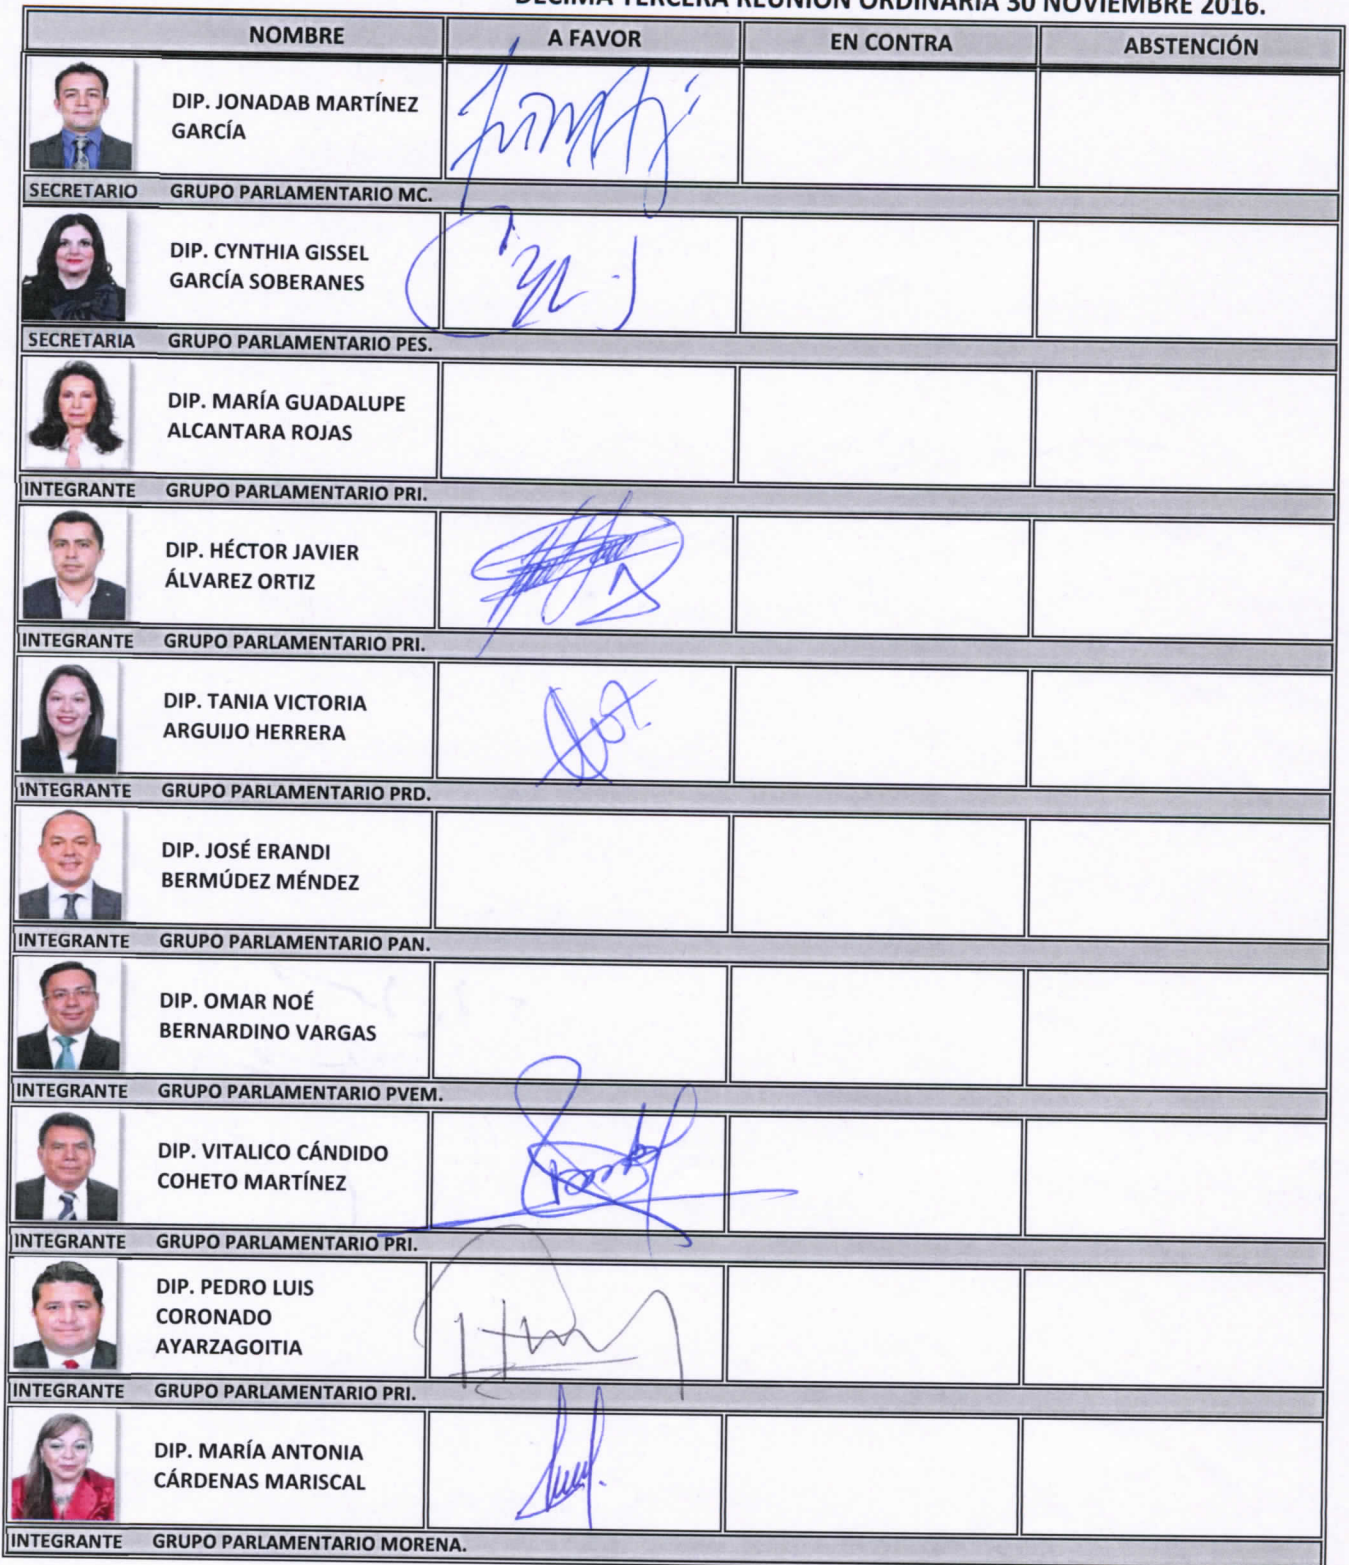 DÉCIMA TERCERA REUNIÓN ORDINARIA 30 NOVIEMBRE 2016.
NOMBRE A FAVOR EN CONTRA ABSTENCIÓN
DIP. JONADAB MARTÍNEZ
GARCÍA
SECRETARIO GRUPO PARLAMENTARIO MC.
DIP. CYNTHIA GISSEL
GARCÍA SOBERANES
SECRETARIA GRUPO PARLAMENTARIO PES.
DIP. MARÍA GUADALUPE
ALCANTARA ROJAS
INTEGRANTE GRUPO PARLAMENTARIO PRI.
DIP. HÉCTOR JAVIER
ÁLVAREZ ORTIZ
INTEGRANTE GRUPO PARLAMENTARIO PRI.
DIP. TANIA VICTORIA
ARGUIJO HERRERA
INTEGRANTE GRUPO PARLAMENTARIO PRD.
DIP. JOSÉ ERANDI
BERMÚDEZ MÉNDEZ
INTEGRANTE GRUPO PARLAMENTARIO PAN.
DIP. OMAR NOÉ
BERNARDINO VARGAS
INTEGRANTE GRUPO PARLAMENTARIO PVEM.
DIP. VITALICO CÁNDIDO
COHETO MARTÍNEZ
INTEGRANTE GRUPO PARLAMENTARIO PRI.
DIP. PEDRO LUIS
CORONADO
AYARZAGOITIA
INTEGRANTE GRUPO PARLAMENTARIO PRI.
DIP. MARÍA ANTONIA
CÁRDENAS MARISCAL
INTEGRANTE GRUPO PARLAMENTARIO MORENA.